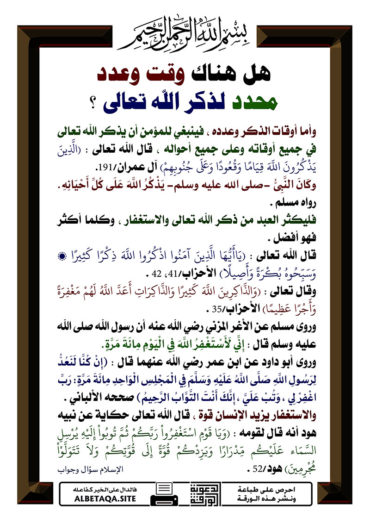 بِسْمِ اللَّهِ الرَّحْمَنِ الرَّحِيمِ
هل هناك وقت وعدد
محدد لذكر الله تعالى ؟
وأما أوقات الذكر وعدده ، فينبغي للمؤمن أن يذكر الله تعالى
في جميع أوقاته وعلى جميع أحواله ، قال الله تعالى : (الَّذِينَ
يَذْكُرُونَ اللَّهَ قِيَامًا وَقُعُودًا وَعَلَى جُنُوبِهِمْ) آل عمران/191.
وكَانَ النَّبِيُّ -صلى الله عليه وسلم- يَذْكُرُ اللهَ عَلَى كُلِّ أَحْيَانِهِ .
رواه مسلم .
فليكثر العبد من ذكر الله تعالى والاستغفار ، وكلما أكثر
فهو أفضل .
قال الله تعالى : (يَاأَيُّهَا الَّذِينَ آمَنُوا اذْكُرُوا اللَّهَ ذِكْرًا كَثِيرًا ۞
وَسَبِّحُوهُ بُكْرَةً وَأَصِيلًا) الأحزاب/41، 42 .
وقال تعالى : (وَالذَّاكِرِينَ اللَّهَ كَثِيرًا وَالذَّاكِرَاتِ أَعَدَّ اللَّهُ لَهُمْ مَغْفِرَةً
وَأَجْرًا عَظِيمًا) الأحزاب/35 .
وروى مسلم عن الأغر المزني رضي الله عنه أن رسول الله صلى الله
عليه وسلم قال : إِنِّي لَأَسْتَغْفِرُ اللَّهَ فِي الْيَوْمِ مِائَةَ مَرَّةٍ.
وروى أبو داود عن ابن عمر رضي الله عنهما قال : (إِنْ كُنَّا لَنَعُدُّ
لِرَسُولِ اللهِ صَلَّى اللهُ عَلَيْهِ وَسَلَّمَ فِي الْمَجْلِسِ الْوَاحِدِ مِائَةَ مَرَّةٍ: رَبِّ
اغْفِرْ لِي ، وَتُبْ عَلَيَّ ، إِنَّكَ أَنْتَ التَّوَّابُ الرَّحِيمُ) صححه الألباني .
والاستغفار يزيد الإنسان قوة ، قال الله تعالى حكاية عن نبيه
هود أنه قال لقومه : (وَيَا قَوْمِ اسْتَغْفِرُوا رَبَّكُمْ ثُمَّ تُوبُوا إِلَيْهِ يُرْسِلِ
السَّمَاءَ عَلَيْكُمْ مِدْرَارًا وَيَزِدْكُمْ قُوَّةً إِلَى قُوَّتِكُمْ وَلَا تَتَوَلَّوْا
مُجْرِمِينَ) هود/52 .
الإسلام سؤال وجواب
احرص على طباعة
ونشر هذه الورقة
الدعوية
الورقة
فالدال على الخير كفاعله
ALBETAQA.SITE